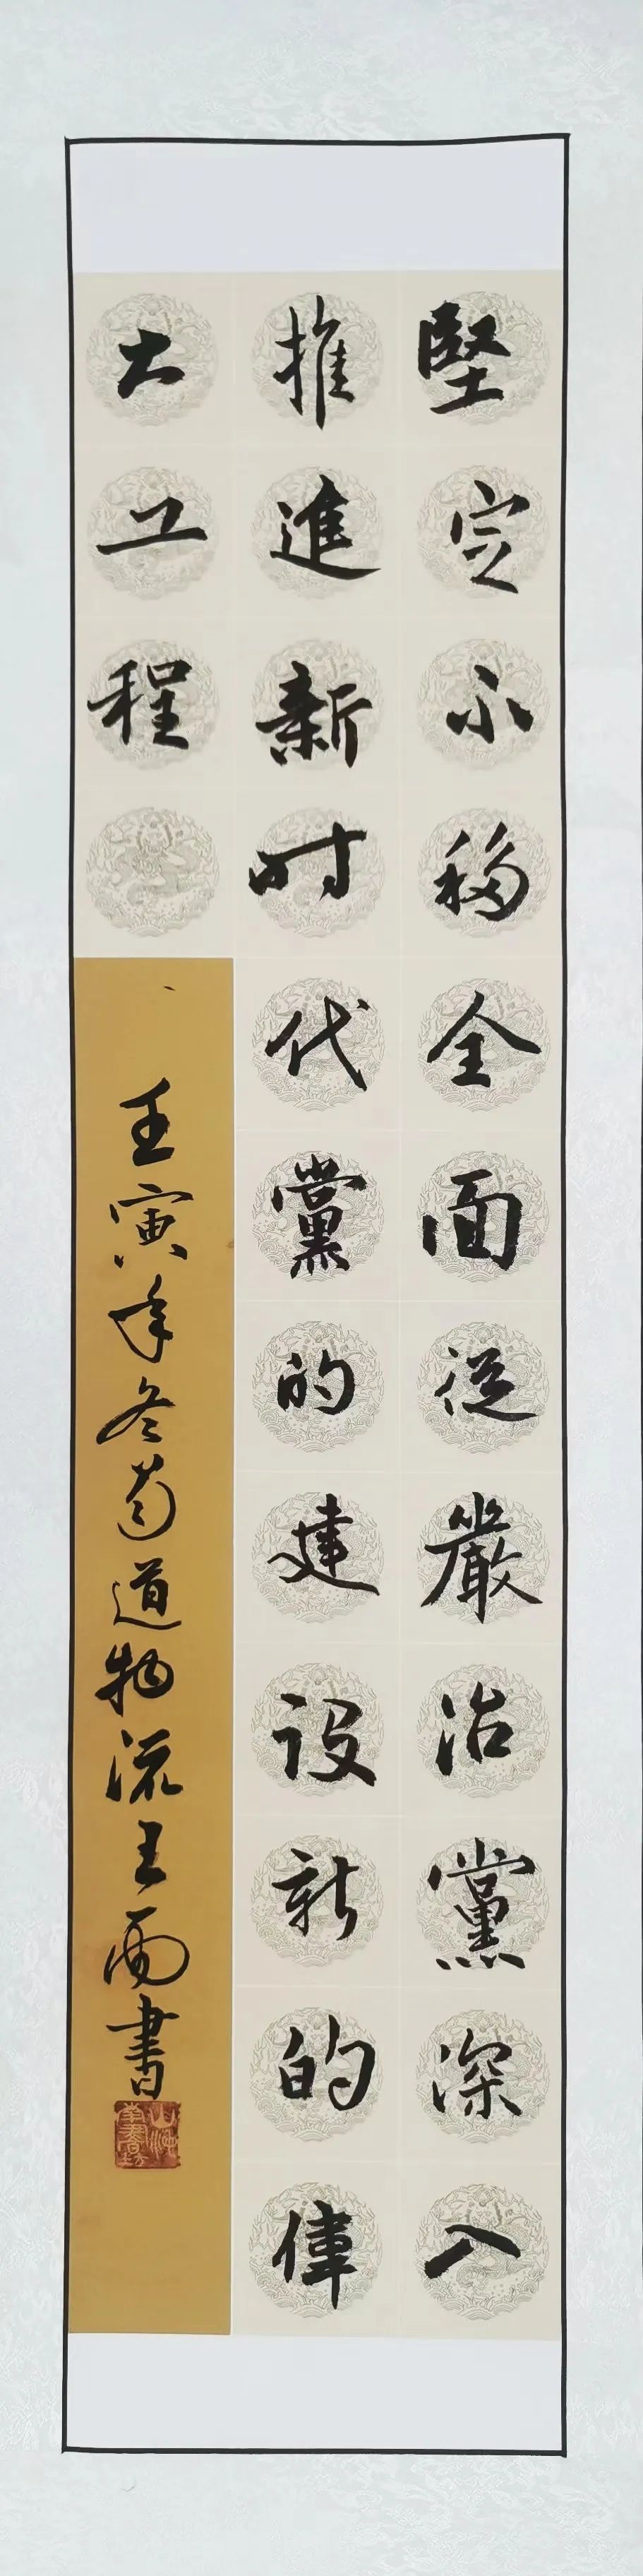 堅定不移全面從嚴治黨深入
推進新时代黨的建设新的偉
大工程
壬寅年冬蜀道物流王雨書